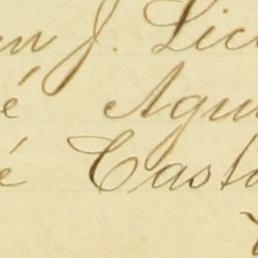 n J. Lic
é Agui
é Casta